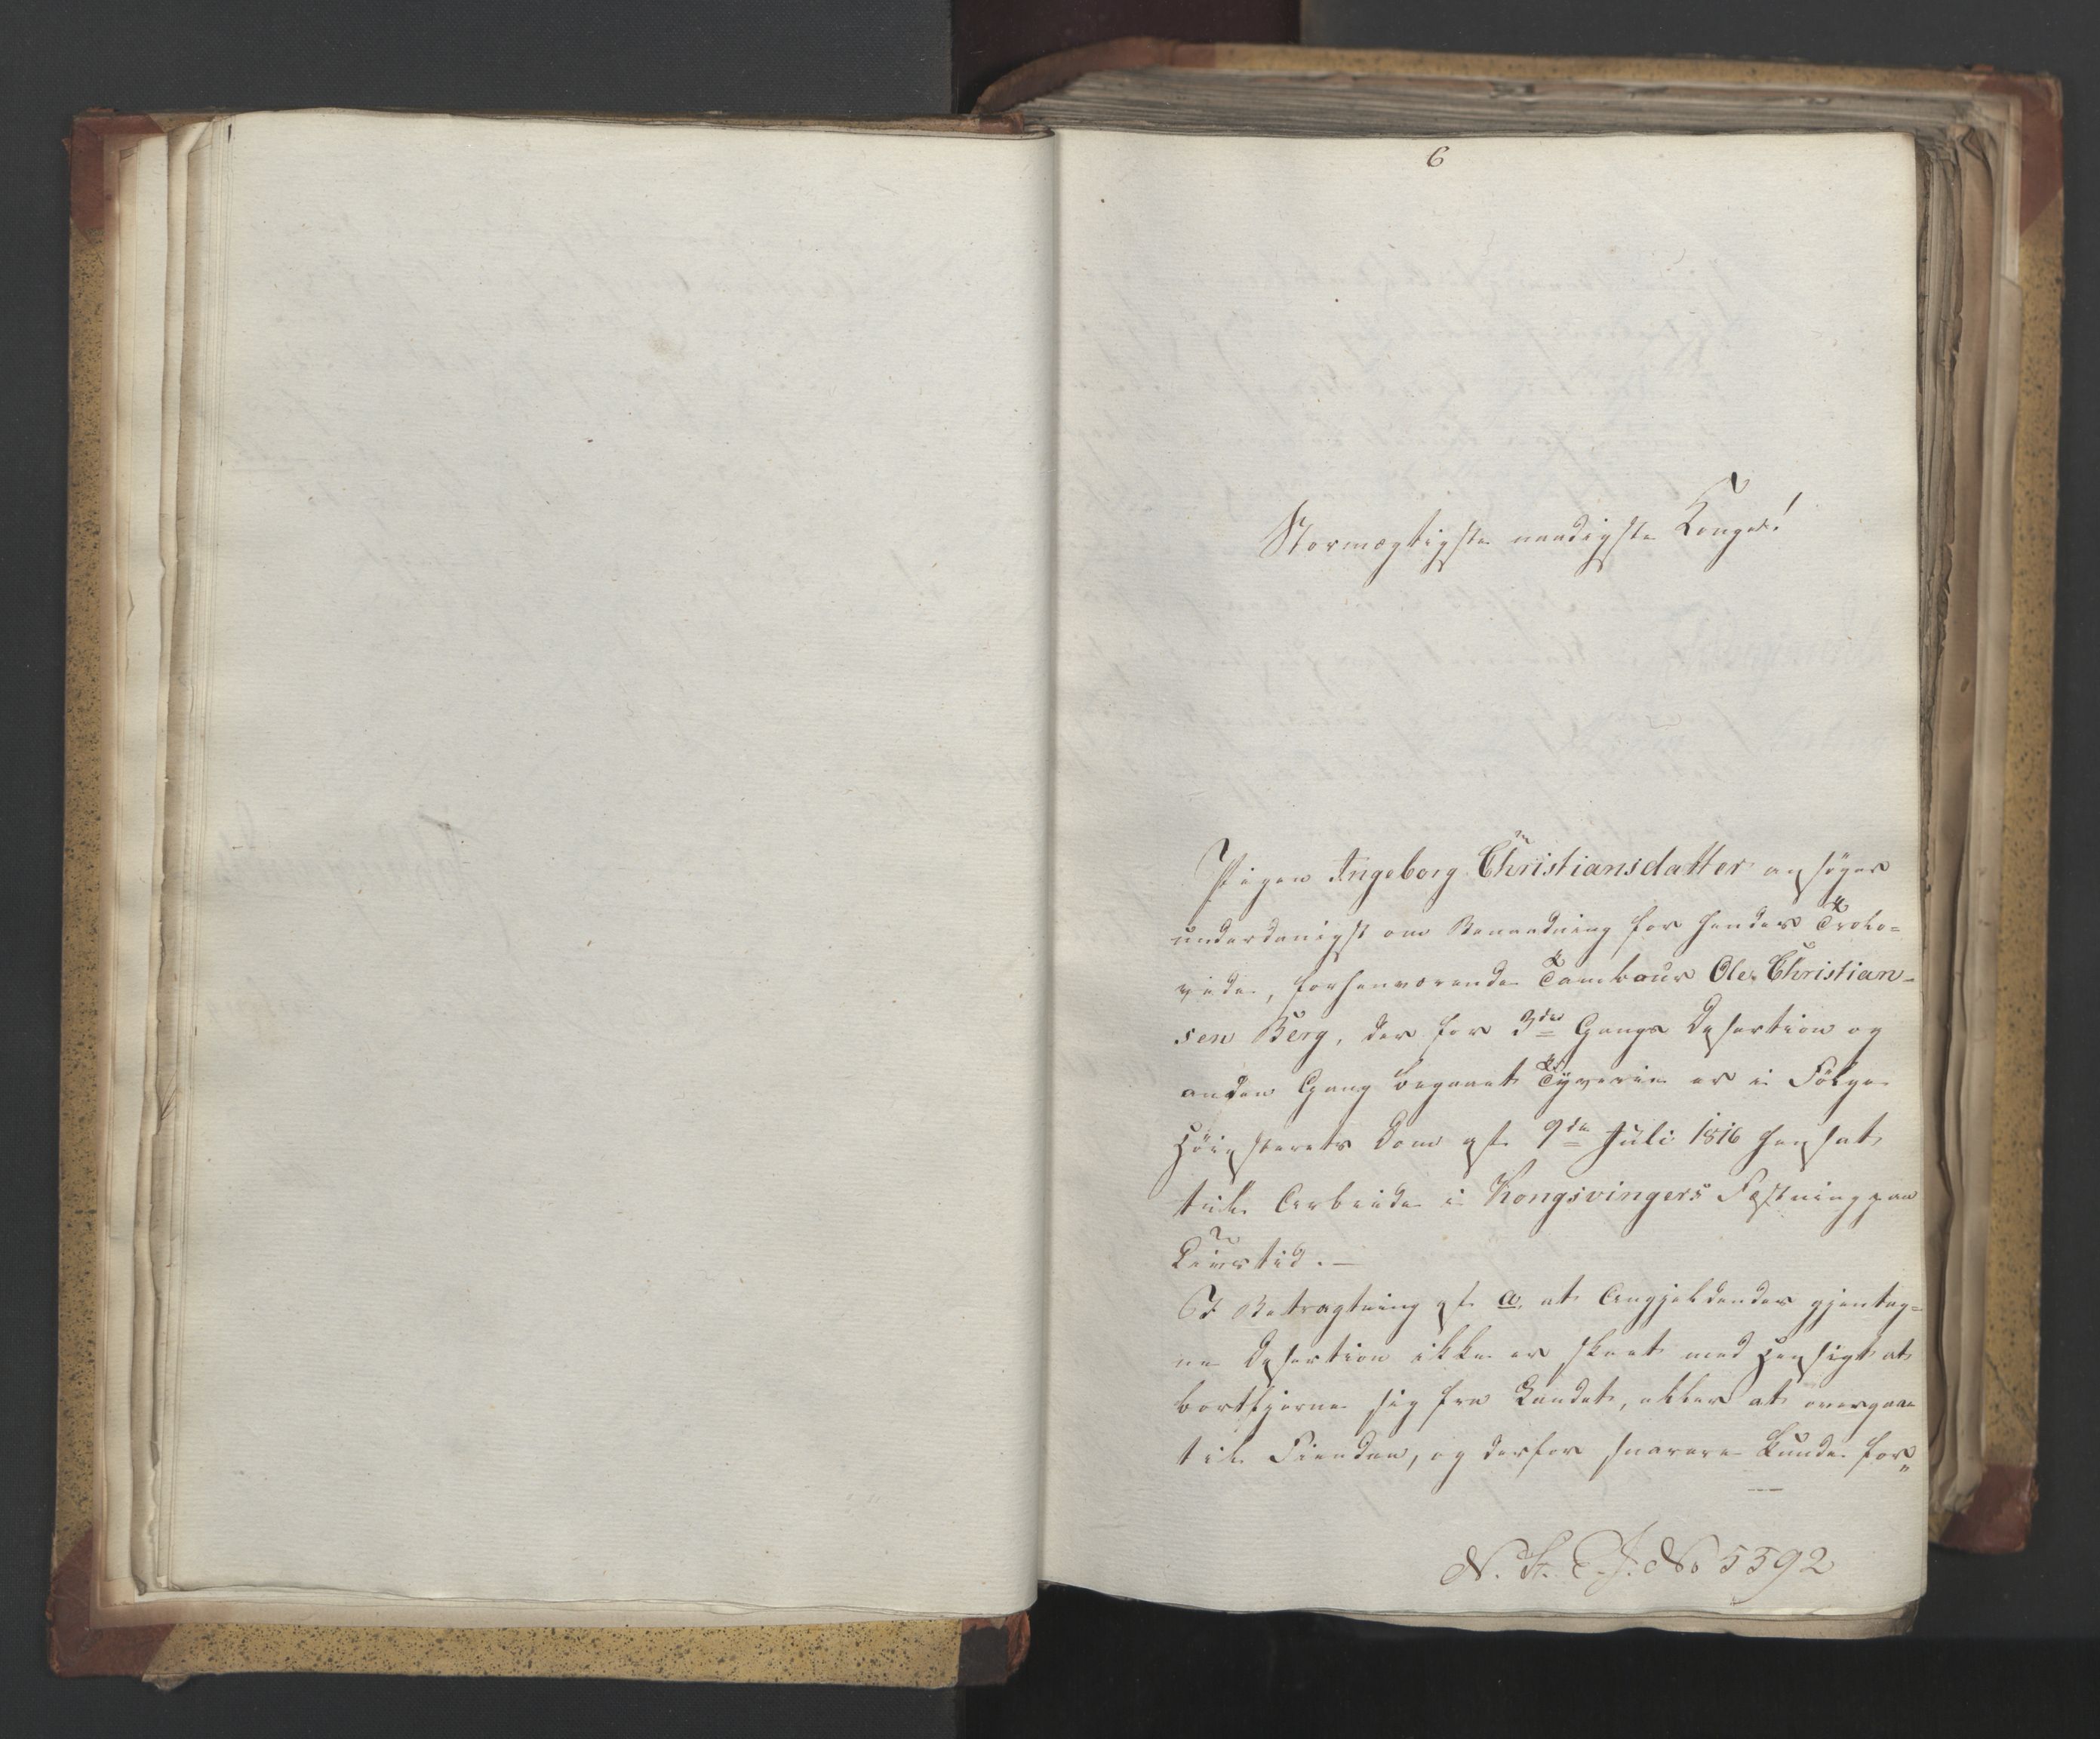 6
Stormægtigste naadigste Konge!
Pigen Ingeborg Christiansdatter ansöger
underdanigst om Benaadning for hendes Trolo-
vede, forhenværende Tambour Ole Christian-
sen Berg, der for 3die Gangs Desertion og
anden Gang begaaet Tyverie er i Fölge
Höiesterets Dom af 9de Juli 1816 hensat
til Arbeide i Kongsvingers Fæstning paa
Livstid. —
I Betragtning af a, at Angjeldendes gjentag-
ne Desertion ikke er skeet med Hensigt at
bortfjerne sig fra Landet, eller at overgaae
til Fienden, og derfor snarere kunde for"
N. St. J. No 5592